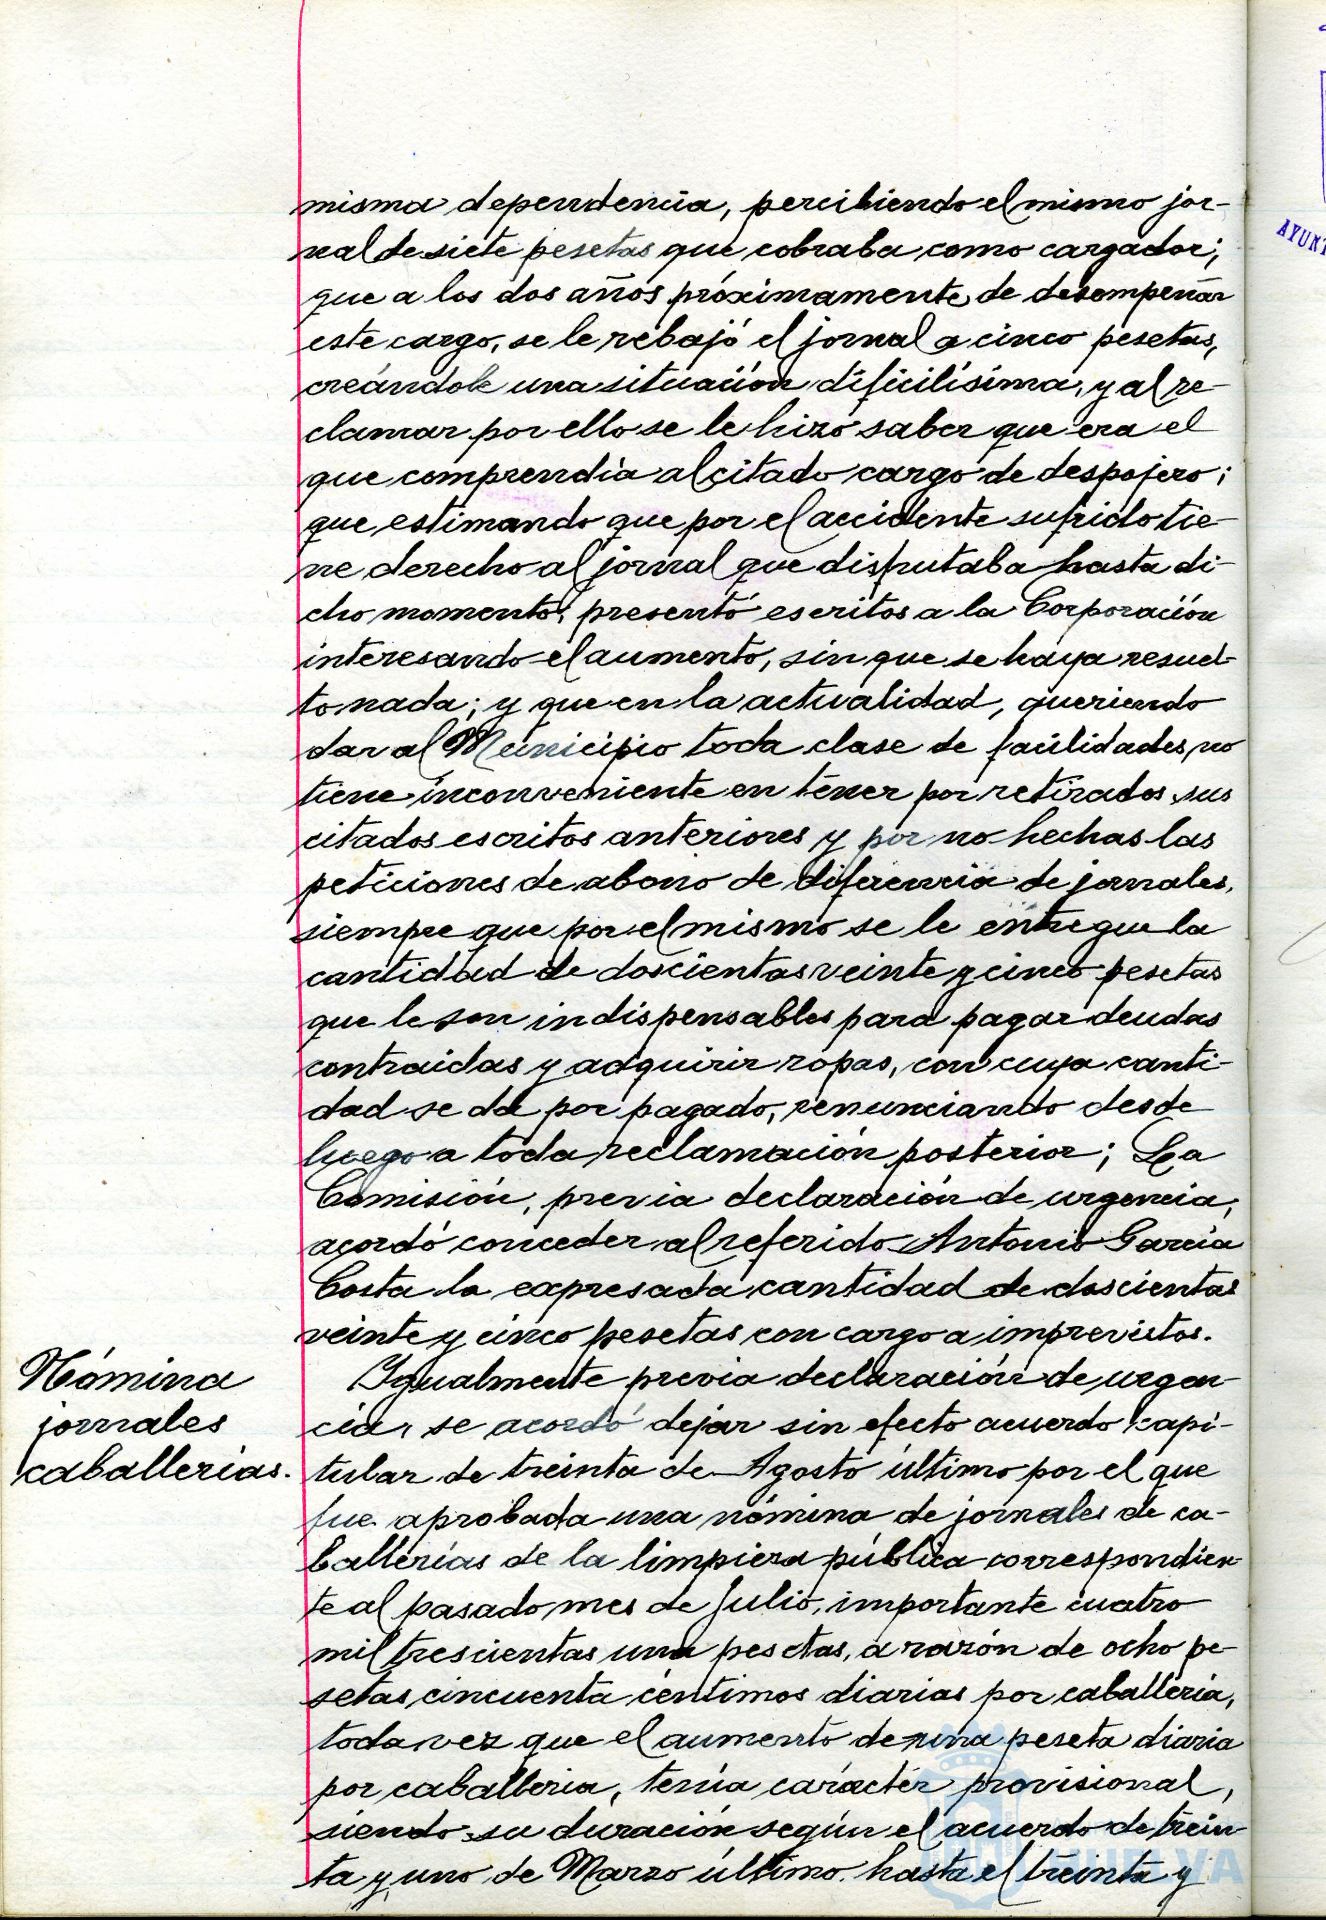 misma dependencia, percibiendo el mismo jor-
nal de siete pesetas que cobraba como cargador;
que a los dos años próximamente de desempeñar
este cargo, se le rebajó el jornal a cinco pesetas,
creándole una situación dificilísima, y al re-
clamar por ello se le hizo saber que era el
que comprendía al citado cargo de despojero;
que estimando que por el accidente sufrido tie-
ne derecho al jornal que disfrutaba hasta di-
cho momento, presentó escritos a la Corporación
interesando el aumento, sin que se haya resuel-
to nada; y que en la actualidad, queriendo
dar al Municipio toda clase de facilidades, no
tiene inconveniente en tener por retirados sus
citados escritos anteriores y por no hechas las
peticiones de abono de diferencia de jornales,
siempre que por el mismo se le entregue la
cantidad de doscientas veinte y cinco pesetas
que le son indispensables para pagar deudas
contraidas y adquirir ropas, con cuya canti-
dad se da por pagado, renunciando desde
luego a toda reclamación posterior; La
Comisión, previa declaración de urgencia,
acordó conceder al referido Antonio García
Costa la expresada cantidad de doscientas
veinte y cinco pesetas con cargo a imprevistos.
Nómina
jornales
caballerías.
Igualmente previa declaración de urgen-
cia, se acordó dejar sin efecto acuerdo capi-
tular de treinta de Agosto último por el que
fue aprobada una nómina de jornales de ca-
ballerías de la limpieza pública correspondien-
te al pasado mes de Julio, importante cuatro
mil trescientas una pesetas, a razón de ocho pe-
setas cincuenta céntimos diarias por caballería,
toda vez que el aumento de una peseta diaria
por caballería, tenía carácter provisional,
siendo su duración según el acuerdo de trein-
ta y uno de Marzo último hasta el treinta y
AYUNT
HUELVA